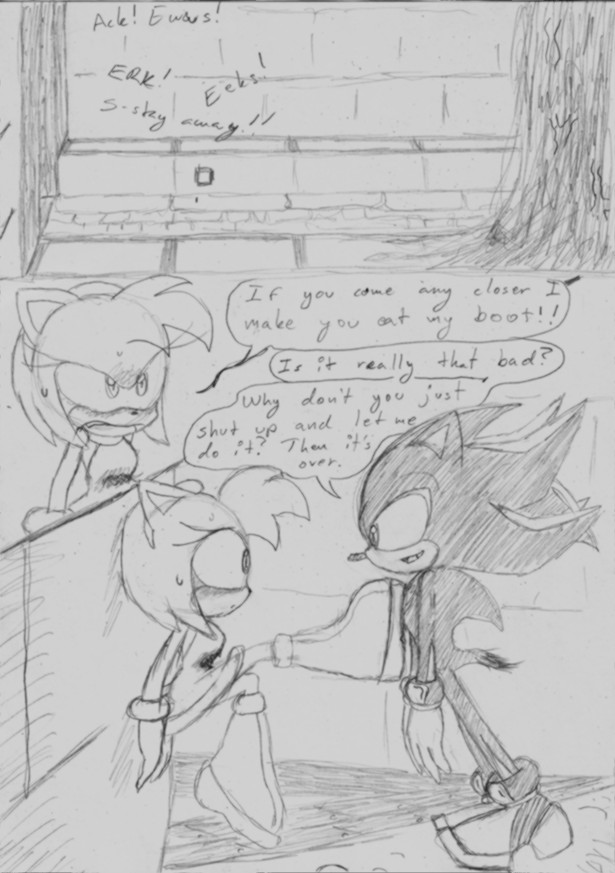 Ack! Ewws!
ERK!
Eeks!
S-stay away!!
If you come any closer I
make you eat my boot!!
Is it really that bad?
Why don't you just
shut up and let me
do it? Then it's
over.